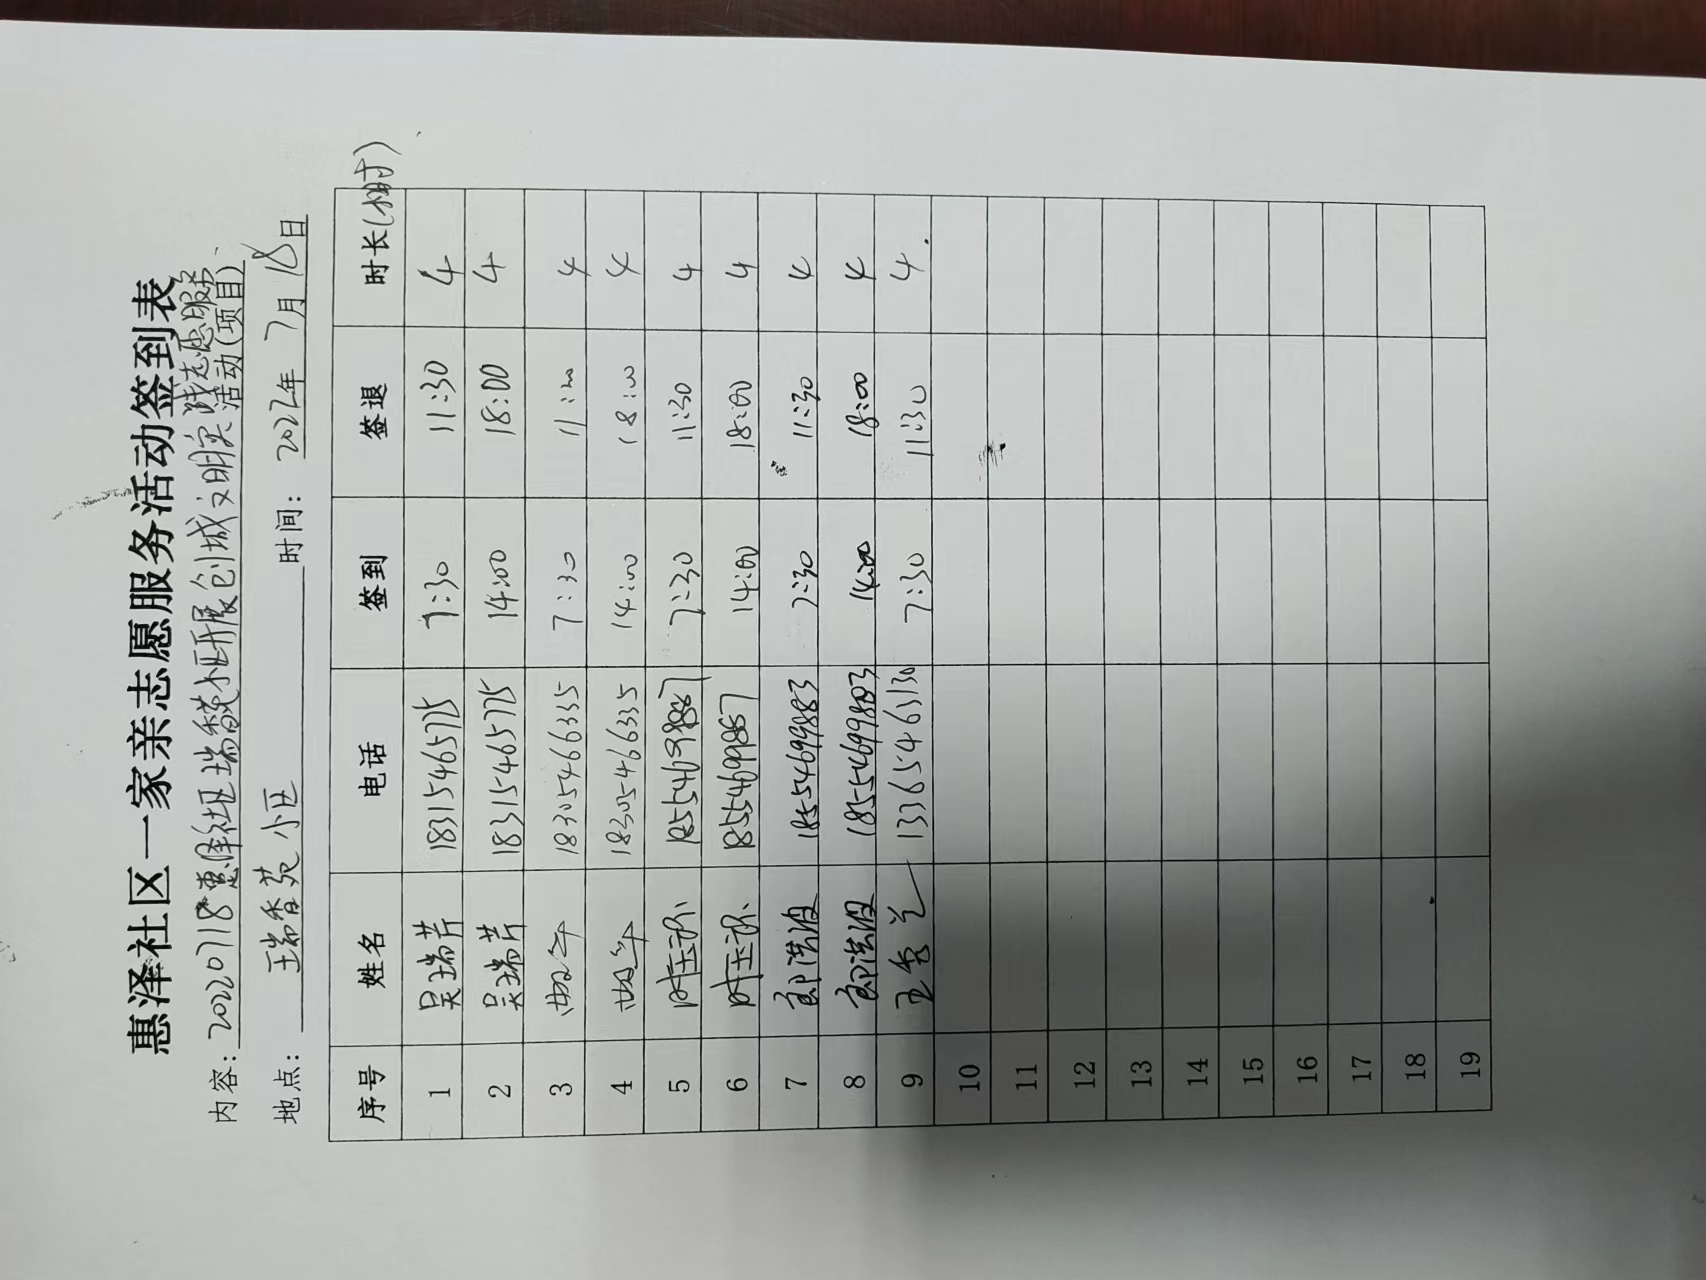 惠泽社区一家亲志愿服务活动签到表
内容：20220718惠泽社区瑞香苑小区开展创城文明实践志愿服务活动(项目)
地点：瑞香苑小区 时间：2022年7月18日
序号 姓名 电话 签到 签退 时长(小时)
1 吴瑞芹 18315465775 7:30 11:30 4
2 吴瑞芹 18315465775 14:00 18:00 4
3 18305466335 7:30 11:30 4
4 18305466335 14:00 18:00 4
5 18554699887 7:30 11:30 4
6 18554699887 14:00 18:00 4
7 郎洪波 18554699883 7:30 11:30 4
8 郎洪波 18554699883 14:00 18:00 4
9 王秀兰 13365463130 7:30 11:30 4
10
11
12
13
14
15
16
17
18
19